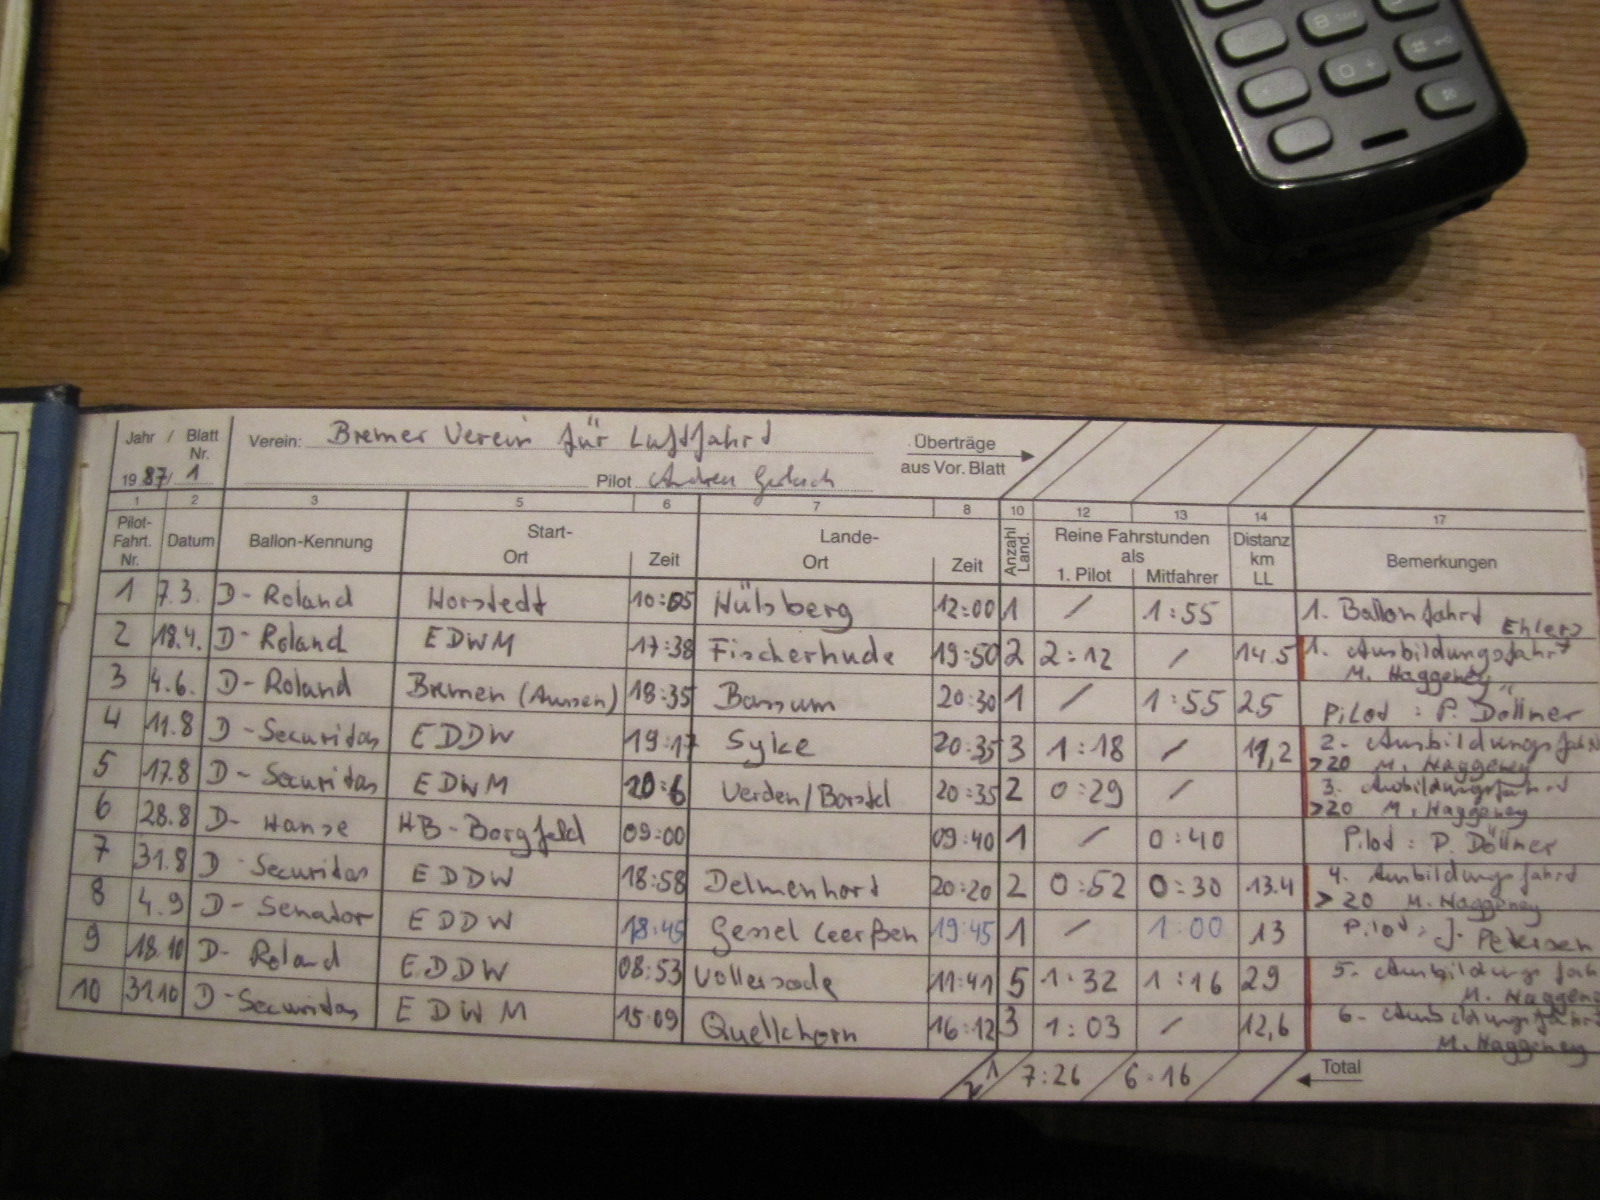 Jahr / Blatt Nr. Verein: Bremer Verein für Luftfahrt Überträge aus Vor. Blatt
1987/ 1 Pilot
1 2 3 5 6 7 8 10 12 13 14 17
Pilot-Fahrt. Nr. Datum Ballon-Kennung Start-Ort Zeit Lande-Ort Zeit Anzahl Land. Reine Fahrstunden als 1. Pilot Mitfahrer Distanz km LL Bemerkungen
1 7.3. D-Roland Horstedt 10:05 Hülsberg 12:00 1 / 1:55 1. Ballonfahrt Ehlers
2 18.4. D-Roland EDWM 17:38 Fischerhude 19:50 2 2:12 / 14.5 1. Ausbildungsfahrt M. Haggeney
3 4.6. D-Roland Bremen 18:35 Bassum 20:30 1 / 1:55 25 Pilot : P. Döllner
4 11.8 D-Securitas EDDW 19:17 Syke 20:35 3 1:18 / 11,2 2. Ausbildungsfahrt >20 M. Haggeney
5 17.8 D-Securitas EDWM Verden/Borstel 20:35 2 0:29 / 3. Ausbildungsfahrt >20 M. Haggeney
6 28.8 D-Hanse HB-Borgfeld 09:00 09:40 1 / 0:40 Pilot : P. Döllner
7 31.8 D-Securitas EDDW 18:58 Delmenhorst 20:20 2 0:52 0:30 13.4 4. Ausbildungsfahrt >20 M. Haggeney
8 4.9 D-Senator EDDW 18:45 Gessel Leerßen 19:45 1 / 1:00 13 Pilot: J. Petersen
9 18.10 D-Roland EDDW 08:53 Vollersode 11:41 5 1:32 1:16 29 5. Ausbildungsfah M. Haggene
10 31.10 D-Securitas EDWM 15:09 Quelkhorn 16:12 3 1:03 / 12,6 6. Ausbildungsfahrt M. Haggeney
21 7:26 6:16 Total